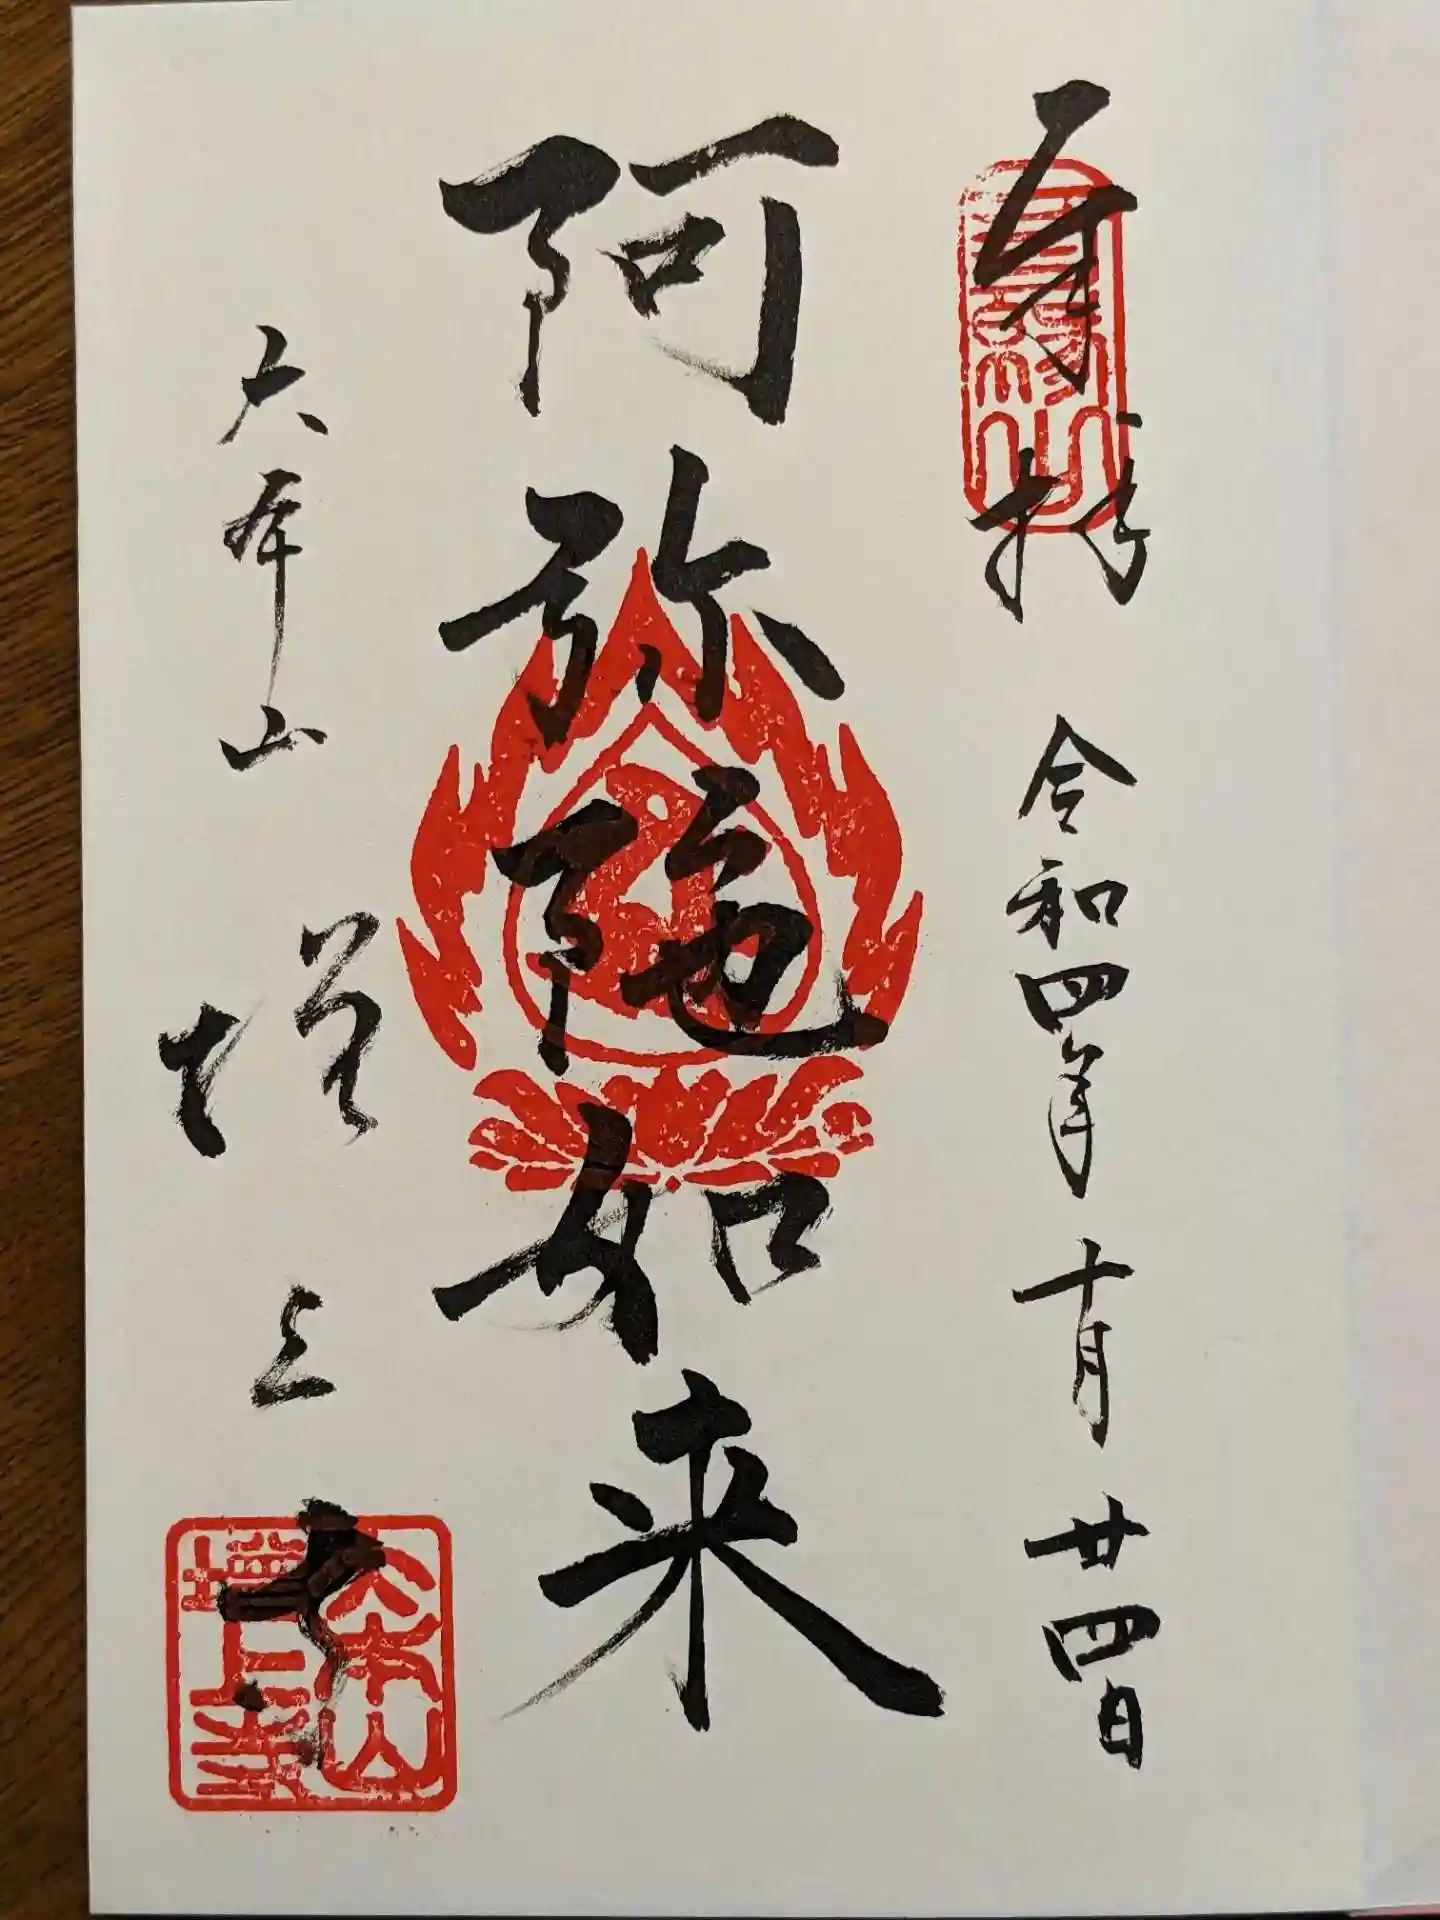 奉拝 令和四年十月廿四日
三縁山
阿弥陀如来
大本山 増上寺
大本山
増上寺